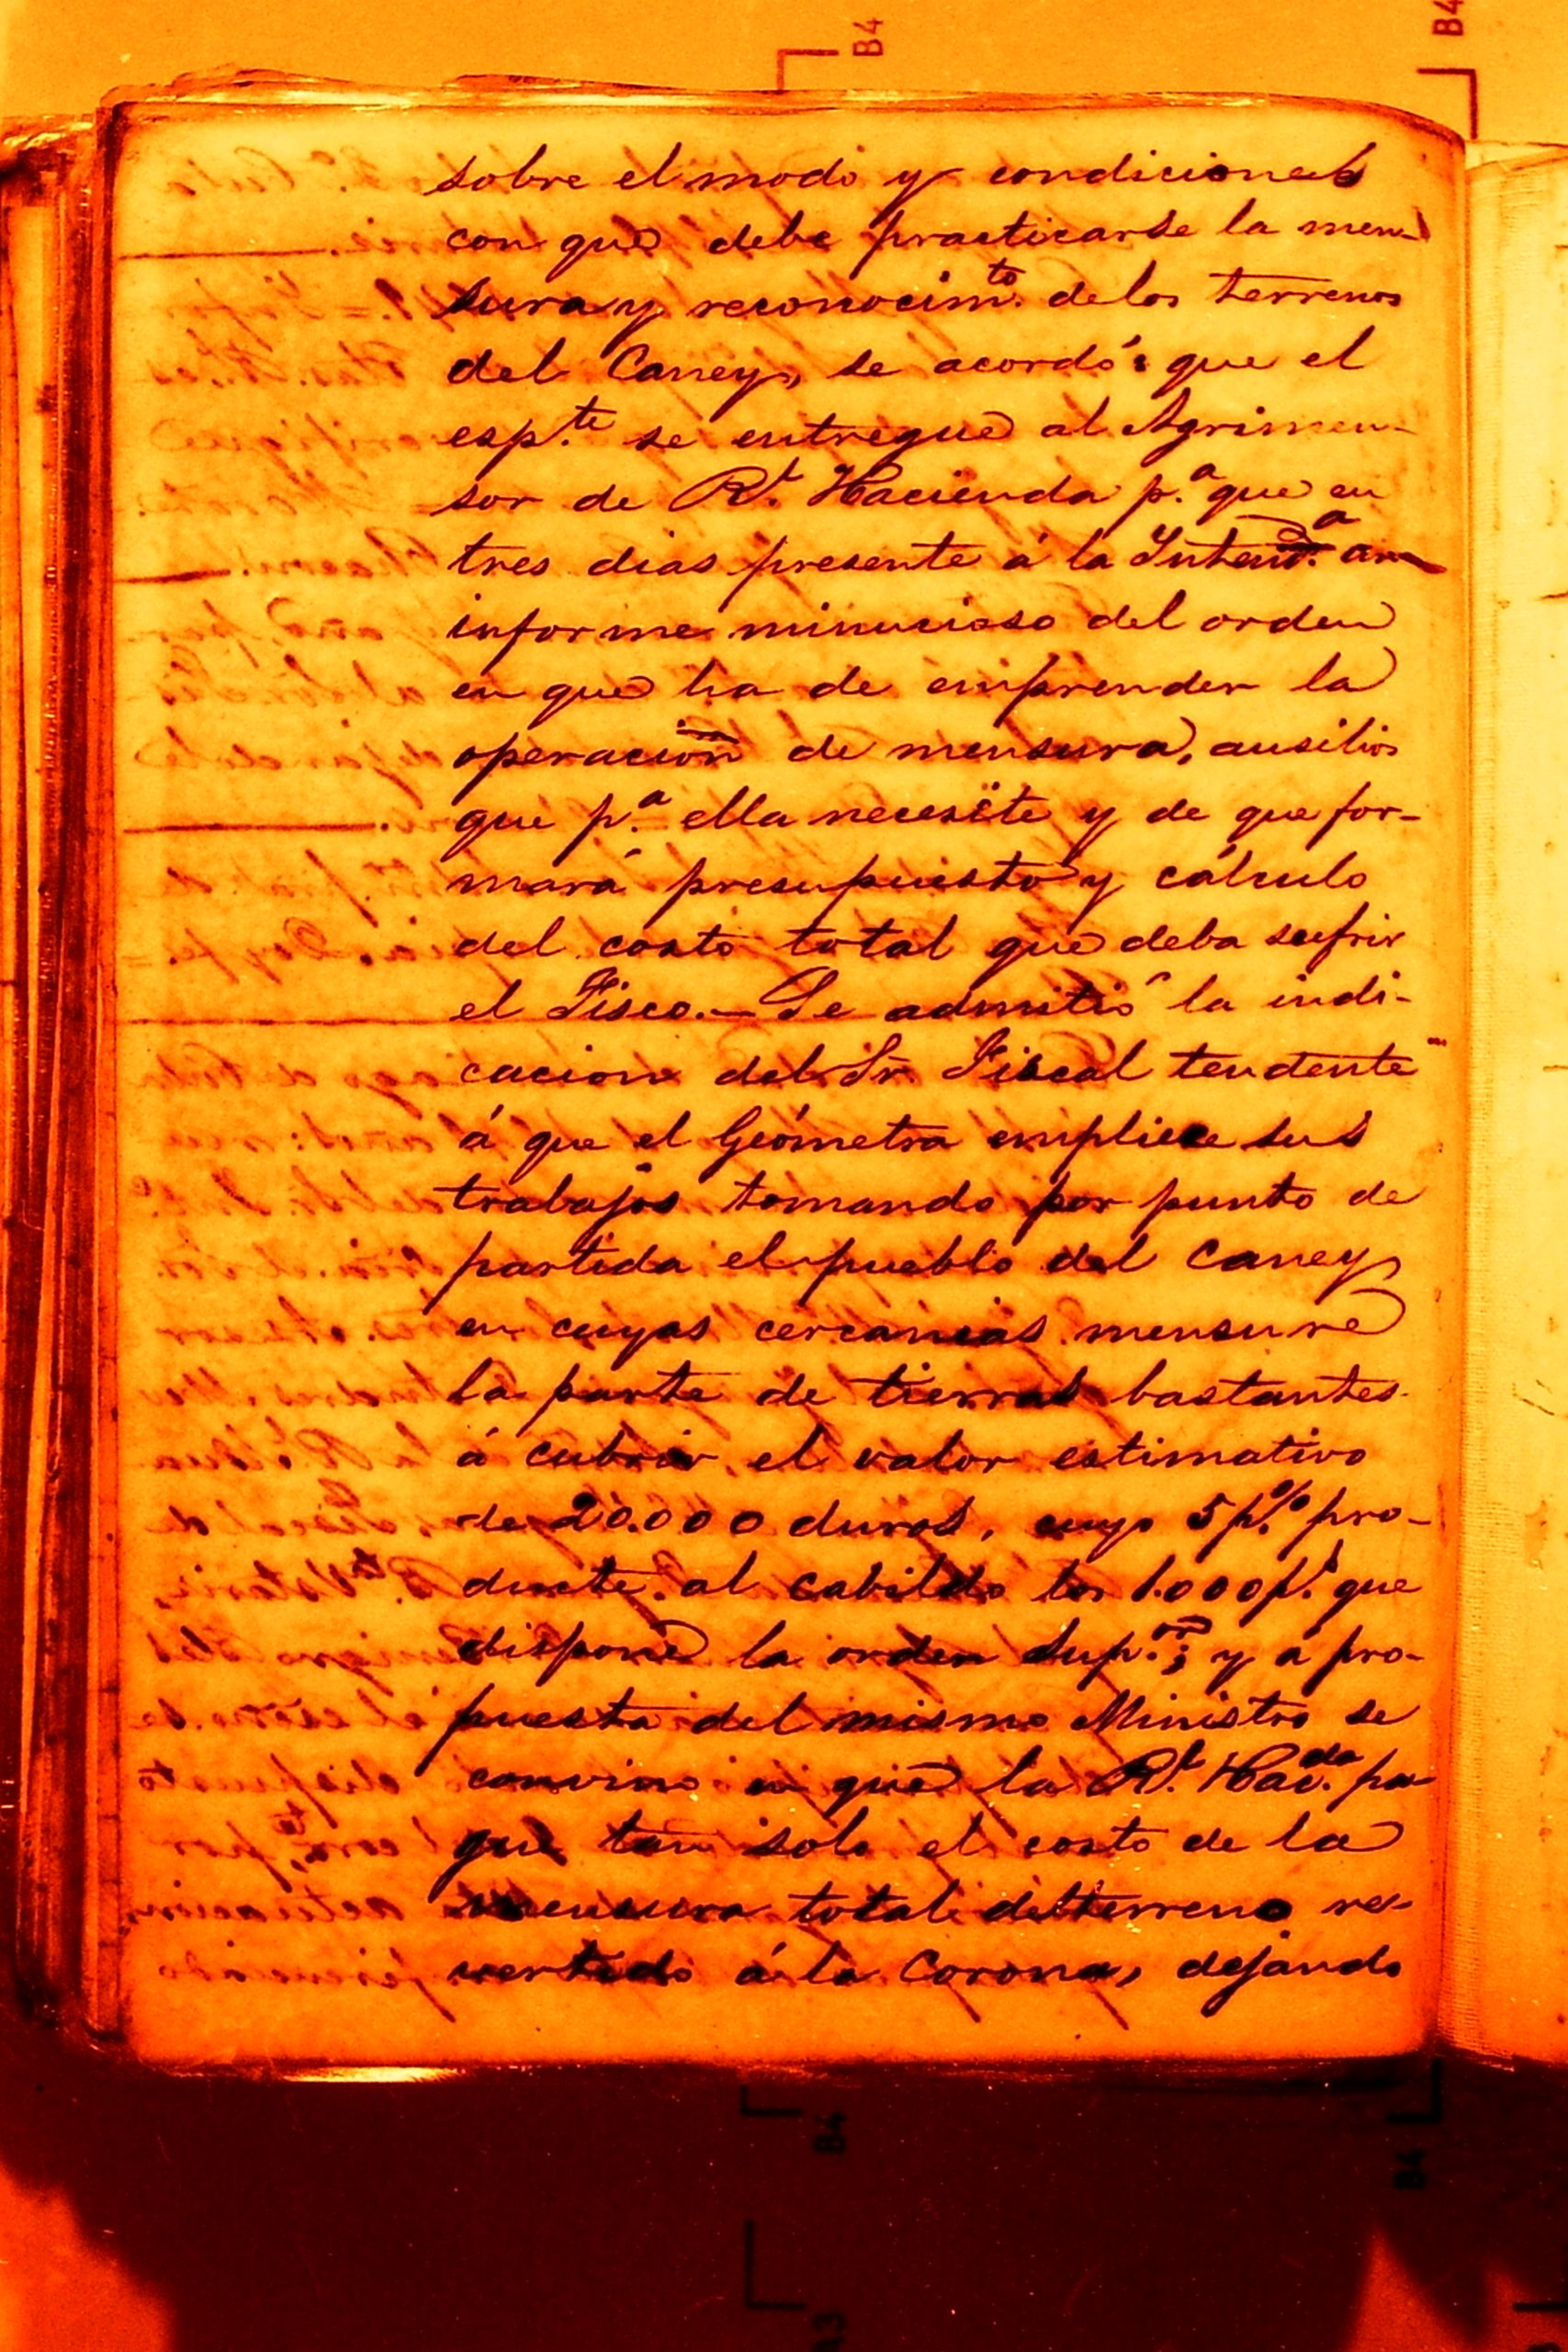 sobre el modo y condiciones
con que debe practicarse la men-
sura y reconocim.to de los terrenos
del Caney, se acordó: que el
esp.te se entregue al Agrimen-
sor de R.l Hacienda p.a que en
tres dias presente á la Intend.a un
informe minucioso del orden
en que ha de emprender la
operación de mensura, ausilios
que p.a ella necesite y de que for-
mará presupuesto y cálculo
del costo total que deba sufrir
el Fisco.— Se admitió la indi-
cacion del Sr Fiscal tendente
á que el Geómetra empliece sus
trabajos tomando por punto de
partida el pueblo del Caney
en cuyas cercanias mensure
la parte de tierras bastantes
á cubrir el valor estimativo
de 20.000 duros, cuyo 5 p% pro-
ducte al cabildo los 1.000 p.s que
dispone la orden sup.or; y a pro-
puesta del mismo Ministro se
convino en que la R.l Hac.da pa-
gue tan solo el costo de la
mensura total del terreno re-
vertido á la Corona, dejando
B4
B4
B4
B4
A3